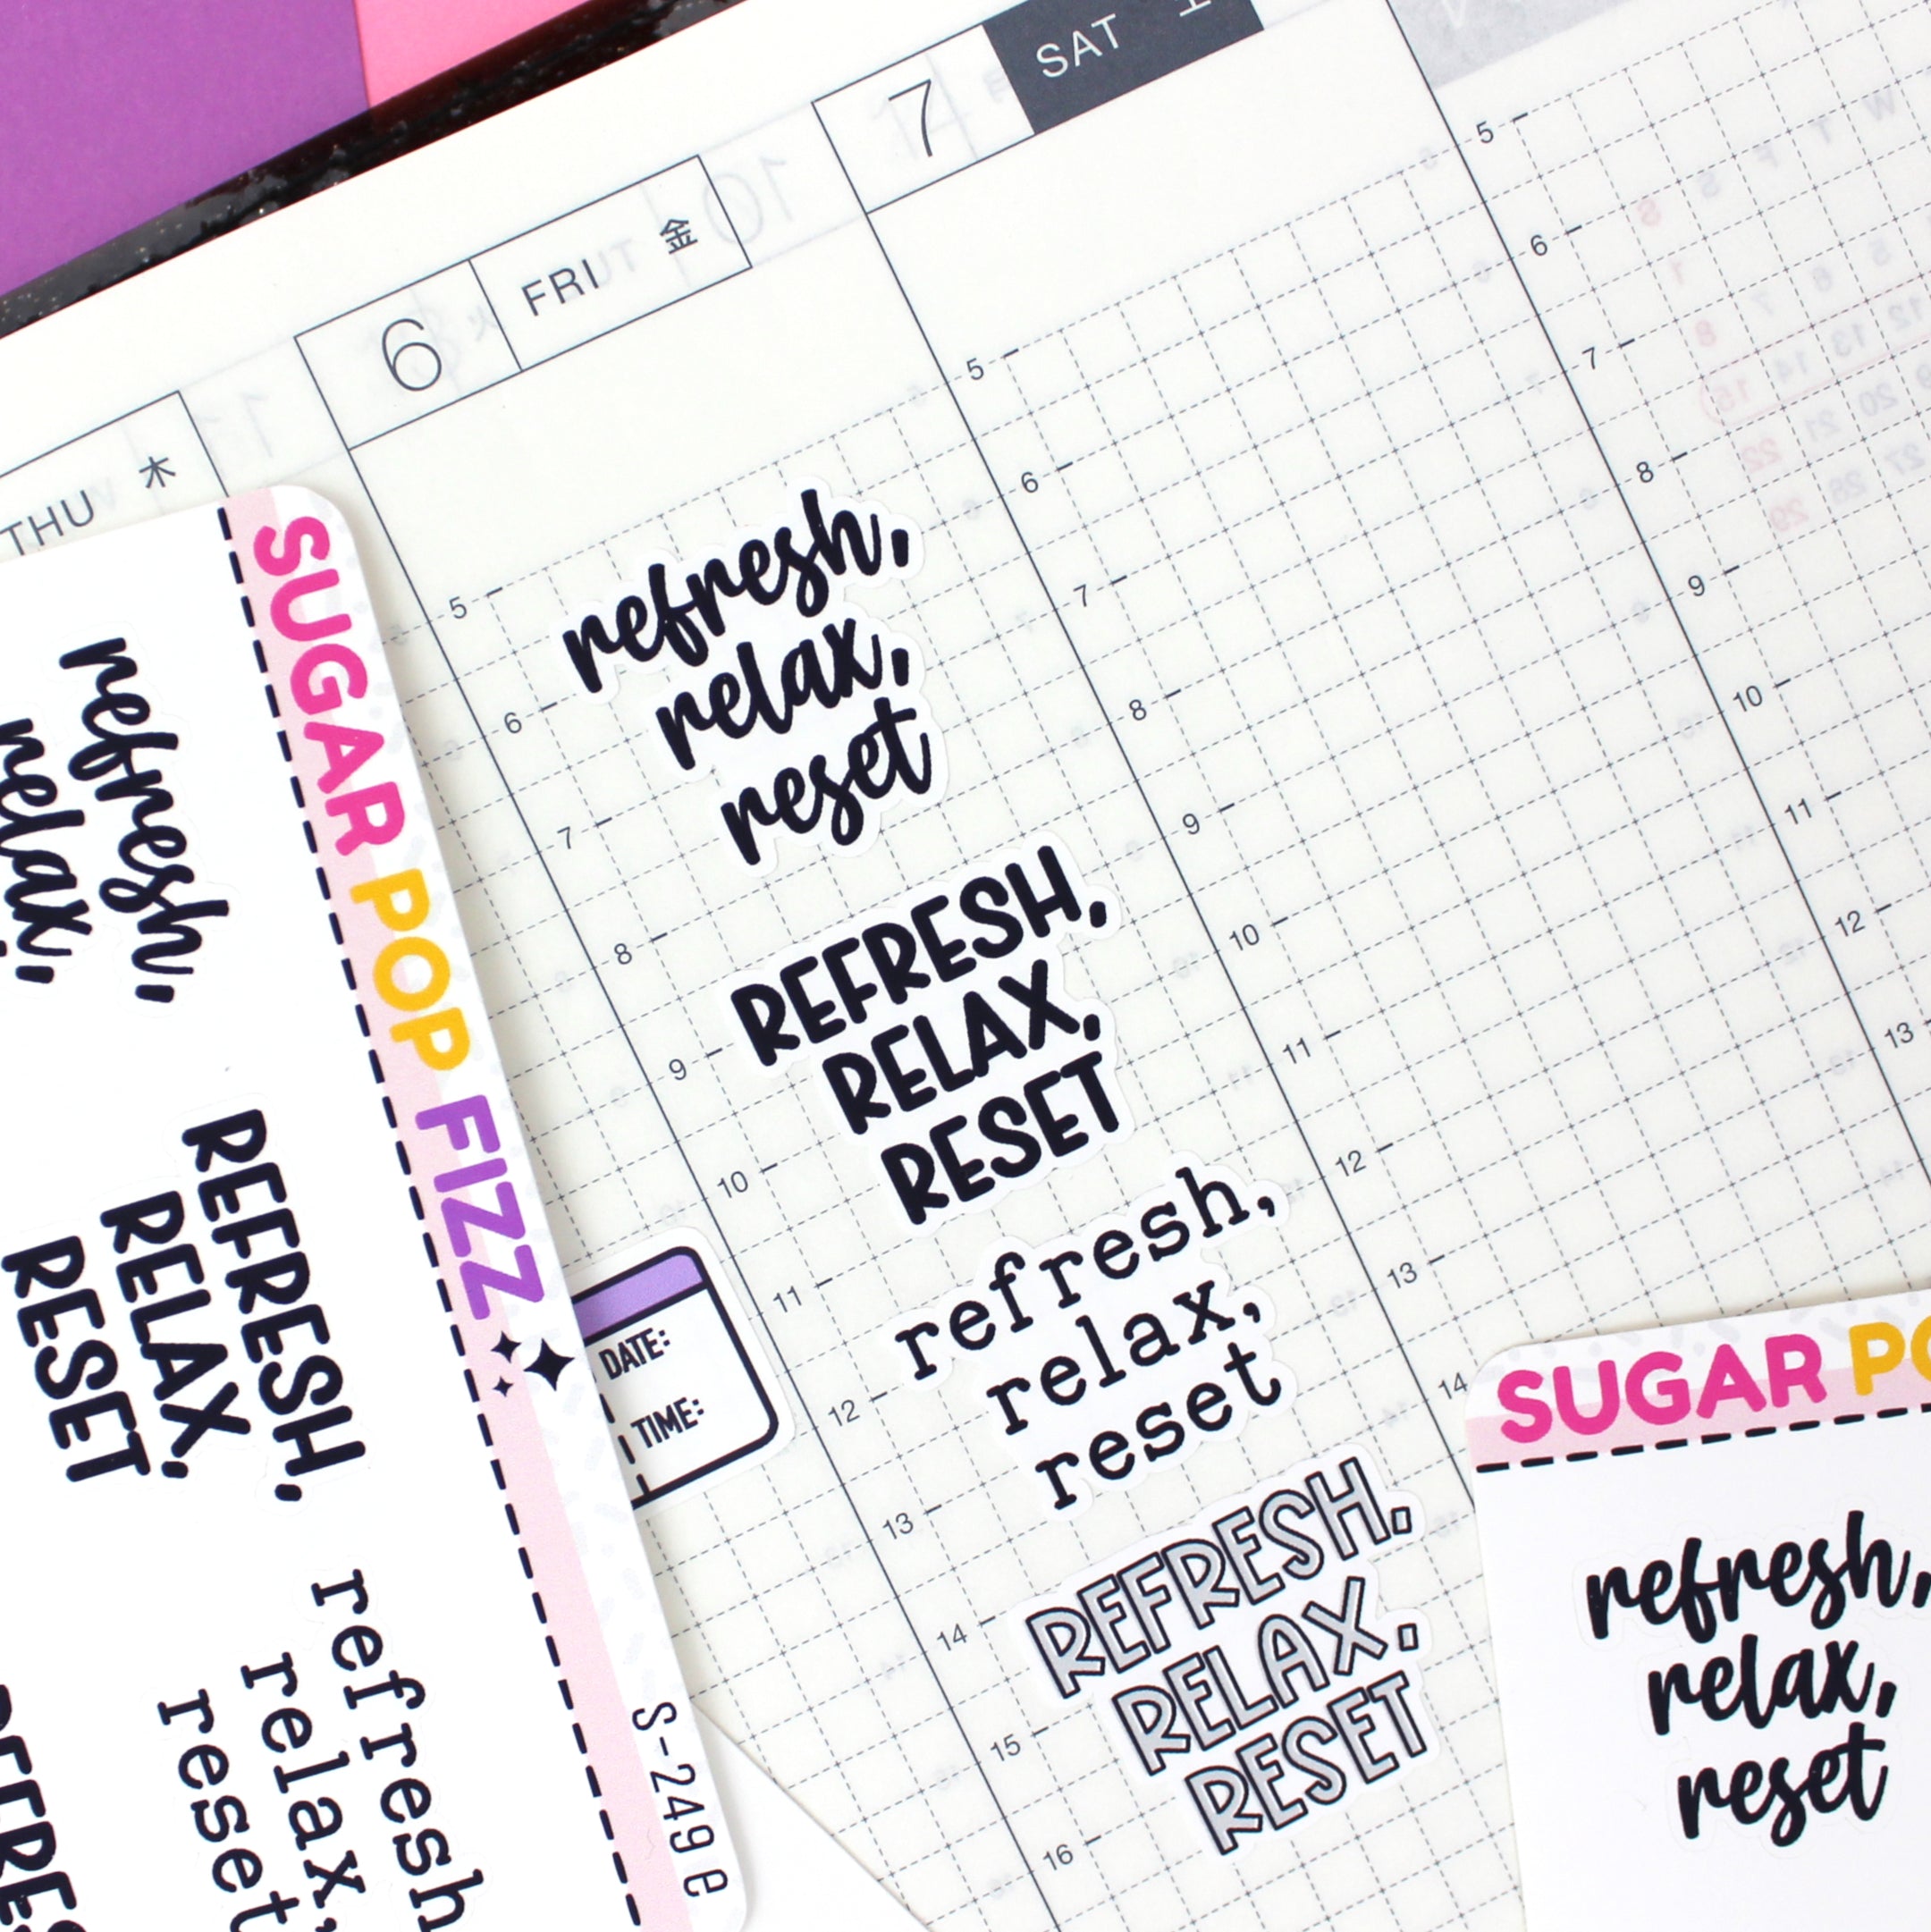 THU 木
6 FRI 金
7 SAT
5
6
7
8
9
10
11
12
13
14
15
16
5
6
7
8
9
10
11
12
13
14
5
6
7
8
9
10
11
12
13
refresh,
relax,
reset
REFRESH,
RELAX,
RESET
refresh,
relax,
reset
REFRESH,
RELAX,
RESET
DATE:
TIME:
SUGAR POP FIZZ
S-249 e
refresh,
relax,
REFRESH,
RELAX,
RESET
refresh
relax,
reset
SUGAR
refresh,
relax,
reset